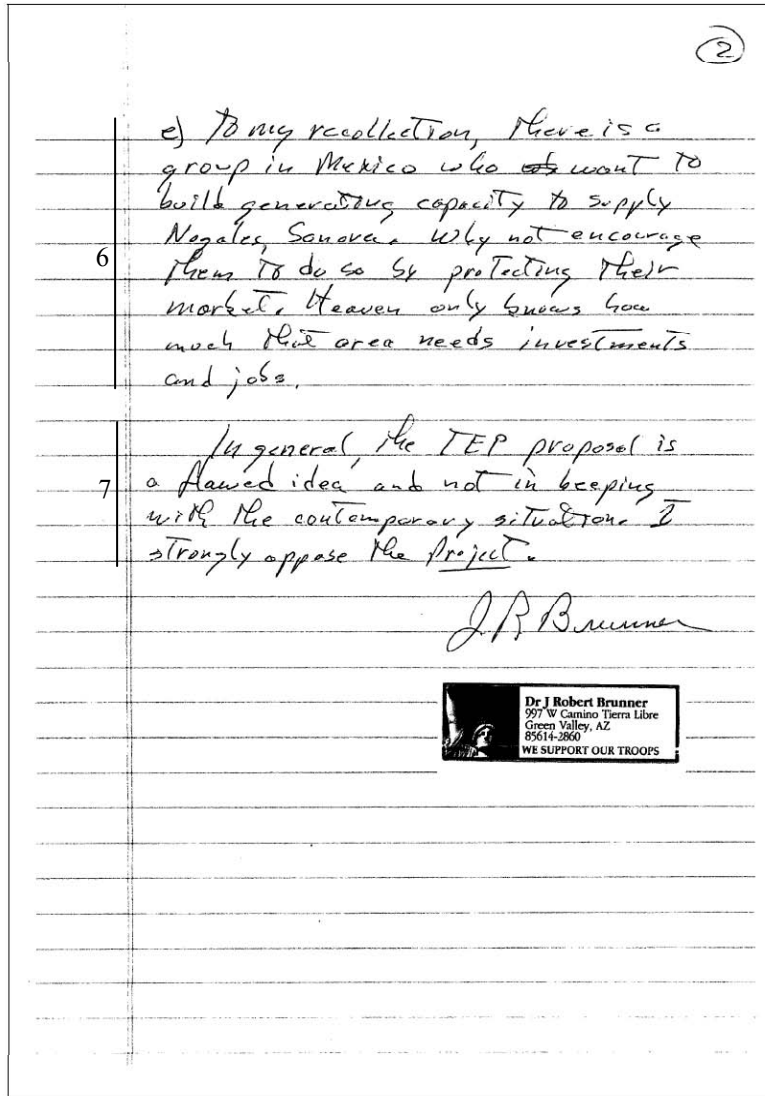 2
e) To my recollection, there is a
group in Mexico who want to
build generating capacity to supply
Nogales, Sonora. Why not encourage
6
them to do so by protecting their
market. Heaven only knows how
much that area needs investments
and jobs.
In general, the TEP proposal is
7
a flawed idea and not in keeping
with the contemporary situation. I
strongly oppose the Project.
J R Brunner
Dr J Robert Brunner
997 W Camino Tierra Libre
Green Valley, AZ
85614-2860
WE SUPPORT OUR TROOPS